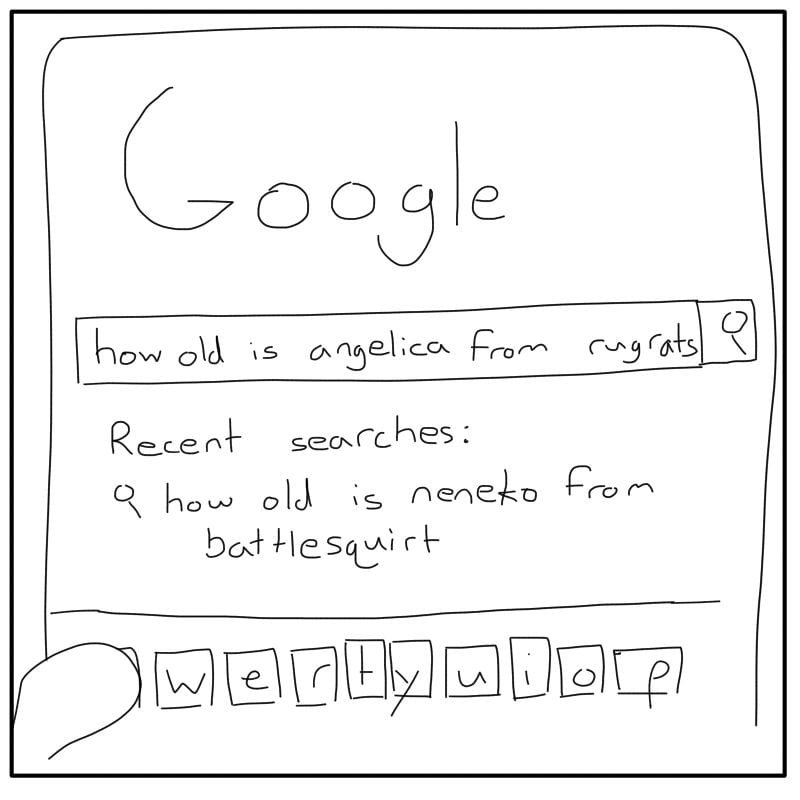 Google
how old is angelica from rugrats
Recent searches:
how old is neneko from
battlesquirt
w e r t y u i o p